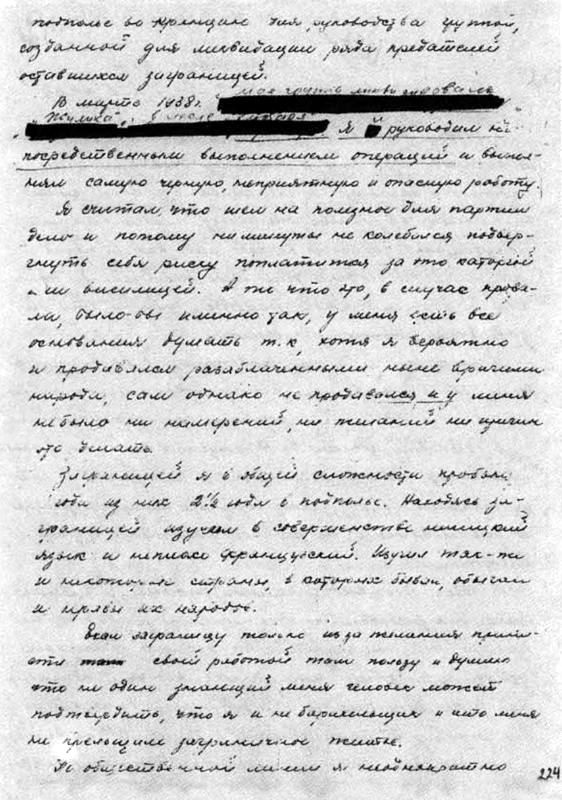 подполье во Францию для руководства группой,
созданной для ликвидации ряда предателей
оставшихся заграницей.
В марте 1938 г. моя группа ликвидировала
"Жулика", в июле
Я руководил не-
посредственным выполнением операций и выпол-
нял самую черную, неприятную и опасную работу.
Я считал, что шел на полезное для партии
дело и потому ни минуты не колебался подвер-
гнуть себя риску поплатится за это каторгой
или висилицей. А то что это, в случае прова-
ла, было-бы именно так, у меня есть все
основания думать т.к, хотя я вероятно
и продавался разоблаченными ныне врагами
народа, сам однако не продавался и у меня
не было ни намерений, ни желаний ни причин
это делать.
Заграницей я в общей сложности пробыл
года из них 2½ года в подполье. Находясь за-
границей изучил в совершенстве немецкий
язык и неплохо французский. Изучил так-же
и некоторые страны, в которых бывал, обычаи
и нравы их народов.
Ехал заграницу только из за желания прине-
сти своей работой там пользу и думаю
что ни один знающий меня человек может
подтвердить, что я и не барахольщик и что меня
не прельщало заграничное житье.
По общественной линии я неоднократно
224